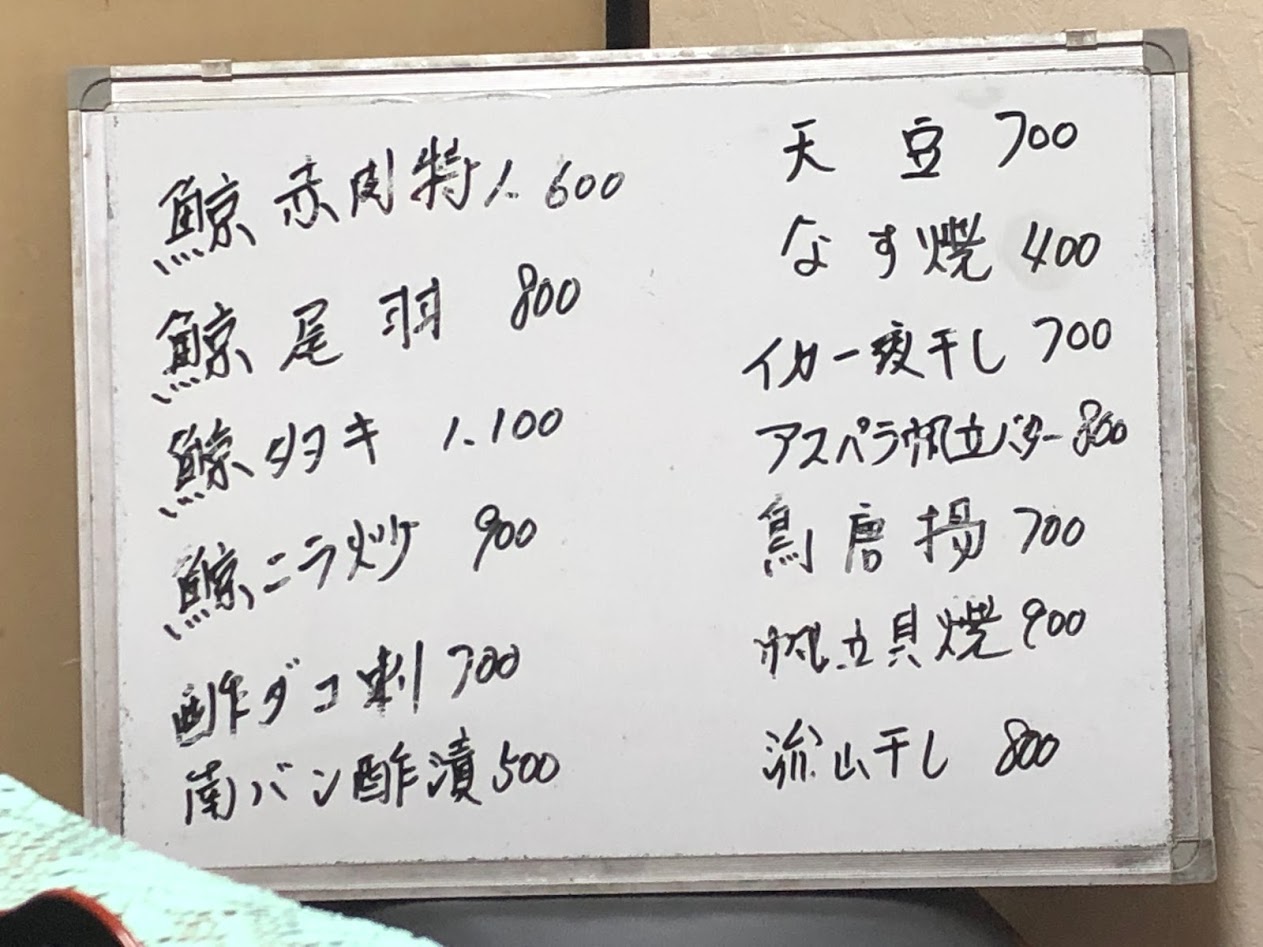 鯨赤肉特 1.600
鯨尾羽 800
鯨タタキ 1.100
鯨ニラ炒ケ 900
酢ダコ刺 700
南バン酢漬 500
天豆 700
なす焼 400
イカ一夜干し 700
アスペラ帆立バター 800
鳥唐揚 700
帆立貝焼 900
流山干し 800